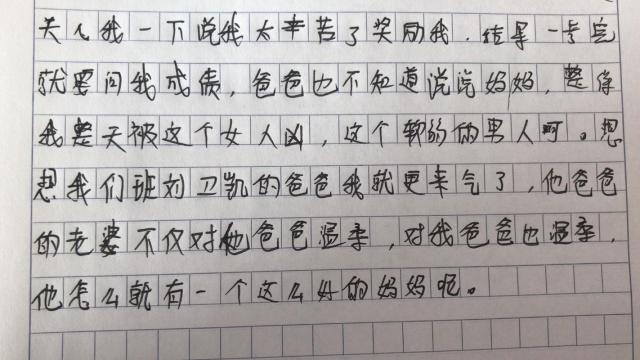 夫人我一下说我太辛苦了奖励我.结果一考完
就要问我成绩,爸爸也不知道说说妈妈,整得
我整天被这个女人凶,这个软弱的男人呵。想
想我们班刘卫凯的爸爸我就更来气了,他爸爸
的老婆不仅对他爸爸温柔,对我爸爸也温柔,
他怎么就有一个这么好的妈妈呢。